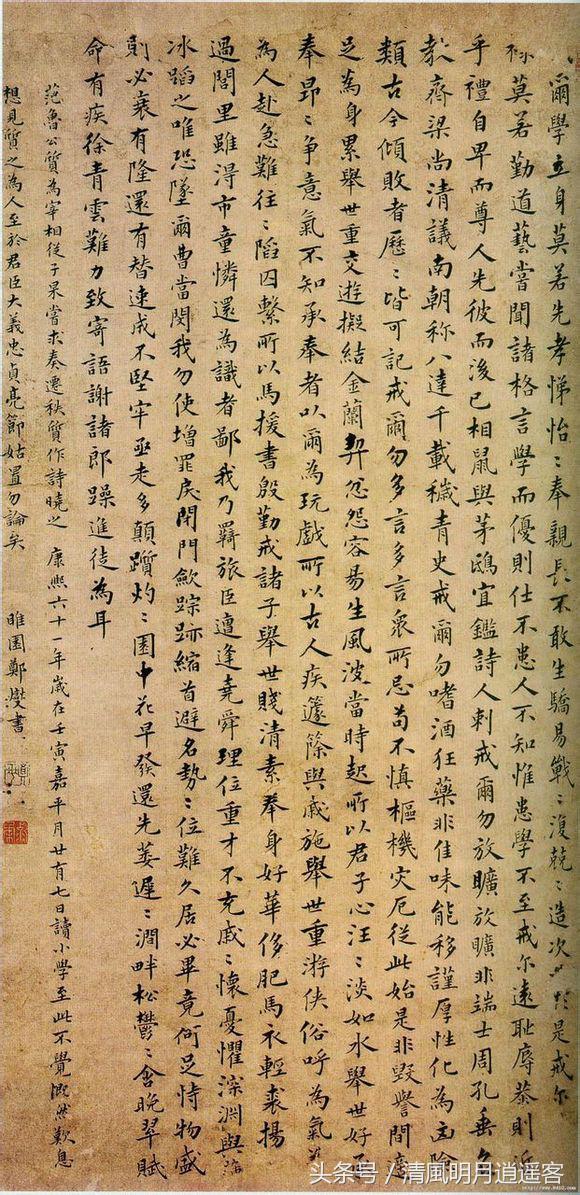 爾學立身莫若先孝悌怡〻奉親長不敢生驕易戰〻復兢〻造次於是戒尔
祢莫若勤道藝嘗聞諸格言學而優則仕不患人不知惟患學不至戒尔遠恥辱恭則近
乎禮自卑而尊人先彼而後己相鼠與茅鴟宜鑑詩人刺戒爾勿放曠放曠非端士周孔垂名
教齊梁尚清議南朝称八達千載穢青史戒爾勿嗜酒狂藥非佳味能移謹厚性化為凶險
類古今傾敗者歷〻皆可記戒爾勿多言多言衆所忌苟不慎樞機灾厄從此始是非毀譽間適
足為身累舉世重交遊擬結金蘭契忿怨容易生風波當時起所以君子心汪〻淡如水舉世好承
奉昂〻争意氣不知承奉者以爾為玩戲所以古人疾籧篨與戚施舉世重游俠俗呼為氣義
為人赴急難往〻陷囚繫所以馬援書殷勤戒諸子舉世賤清素奉身好華侈肥馬衣輕裘揚
過閭里雖得市童憐還為識者鄙我乃羇旅臣遭逢堯舜理位重才不充戚〻懷憂懼深淵與薄
冰蹈之唯恐墜爾曹當閔我勿使增罪戾閉門歛踪跡縮首避名勢〻位難久居必畢竟何足恃物盛
則必衰有隆還有替速成不堅牢亟走多顛躓灼〻園中花早發還先萎遲〻澗畔松鬱〻含晚翠賦
命有疾徐青雲難力致寄語謝諸郎躁進徒為耳
范魯公質為宰相從子杲嘗求奏遷秩質作詩曉之 康熙六十一年歲在壬寅嘉平月廿有七日讀小學至此不覺慨然歎息
想見質之為人至於君臣大義忠貞亮節姑置勿論矣 睢園鄭燮書
头条号 / 清風明月逍遥客